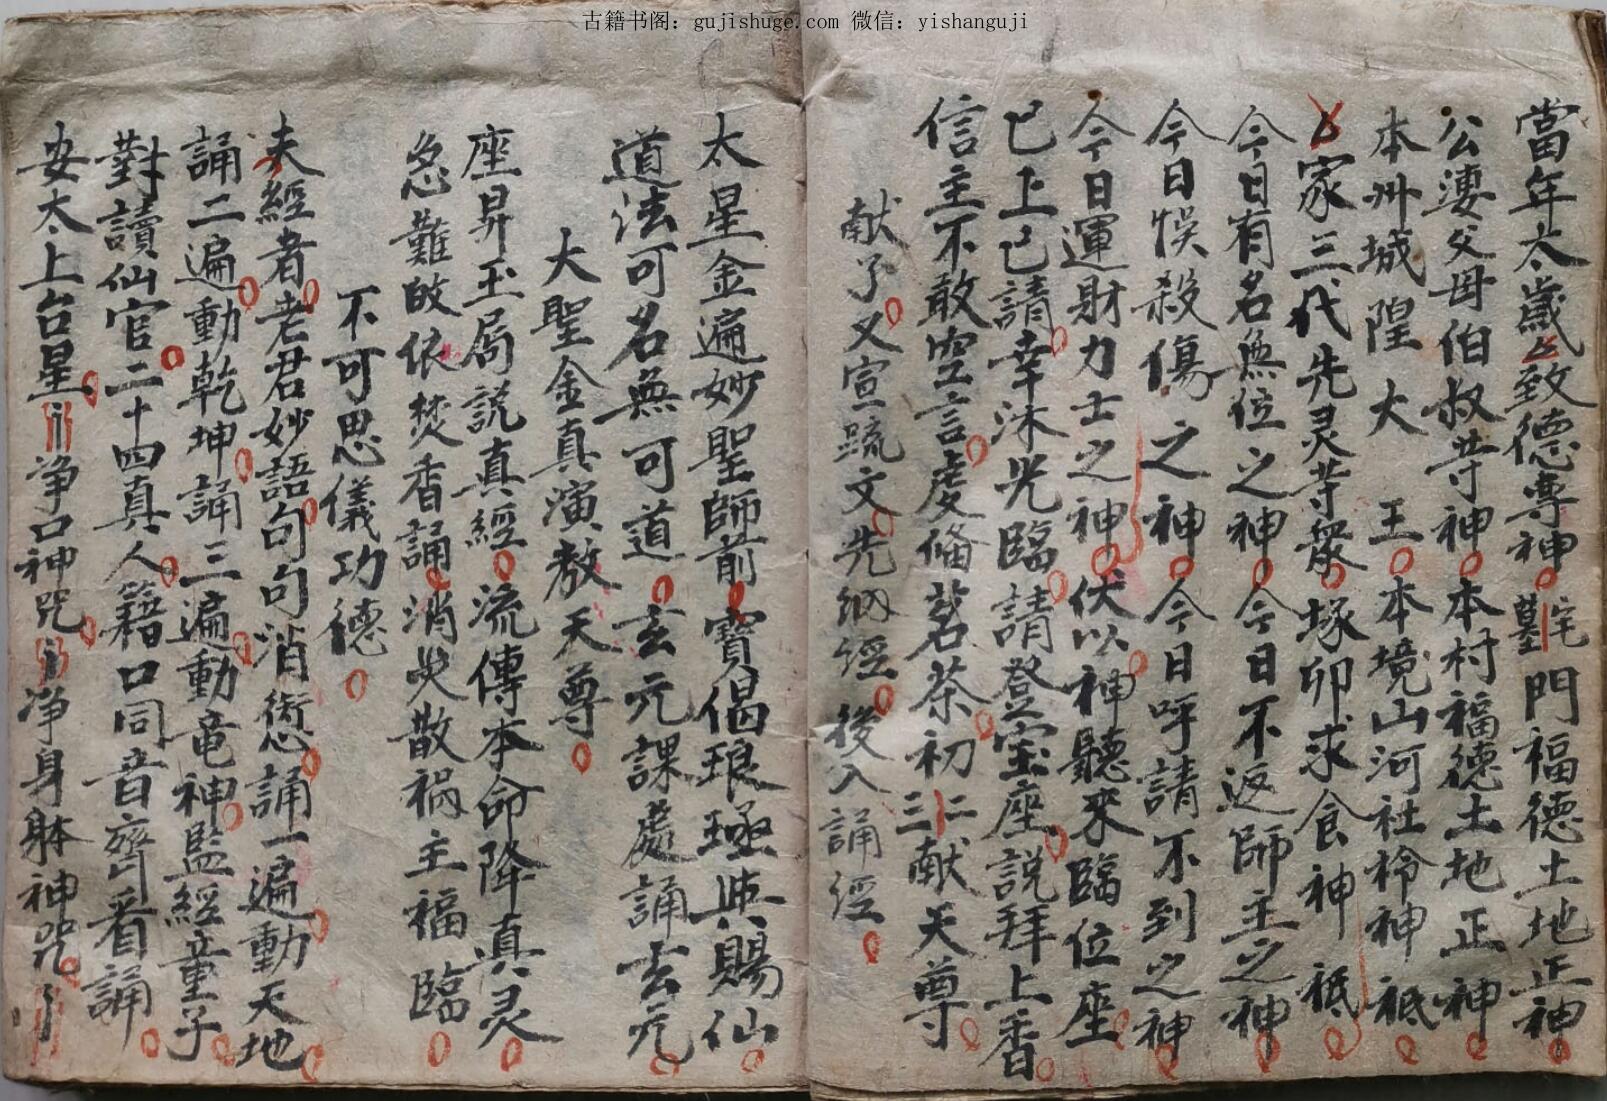 古籍书阁：gujishuge.com 微信：yishanguji
當年太歲厶致德尊神宅墓門福德土地正神
公婆父母伯叔䓁神本村福德土地正神
本州城隍大王本境山河社柃神祗
厶家三代先灵䓁衆塚卯求食神祗
今日有名無位之神今日不返師主之神
今日悮殺傷之神今日呼請不到之神
今日運財力士之神伏以神聽來臨位座
已上已請幸沐光臨請登宝座説拜上香
信主不敢空言虔備茗茶初二三献天尊
献了又宣疏文先納經後入誦經
太星金遍妙聖師前寶偈琅琊典賜仙
道法可名無可道玄元課處誦玄元
大聖金真演教天尊
座昇玉局説真經流傳本命降真灵
急難啟依焚香誦消灾散祸主福臨
不可思儀功德
夫經者老君妙語句句消愆誦一遍動天地
誦二遍動乾坤誦三遍動竜神監經童子
對讀仙官二十四真人籍口同音齊看誦
安太上台星净口神咒净身躰神咒